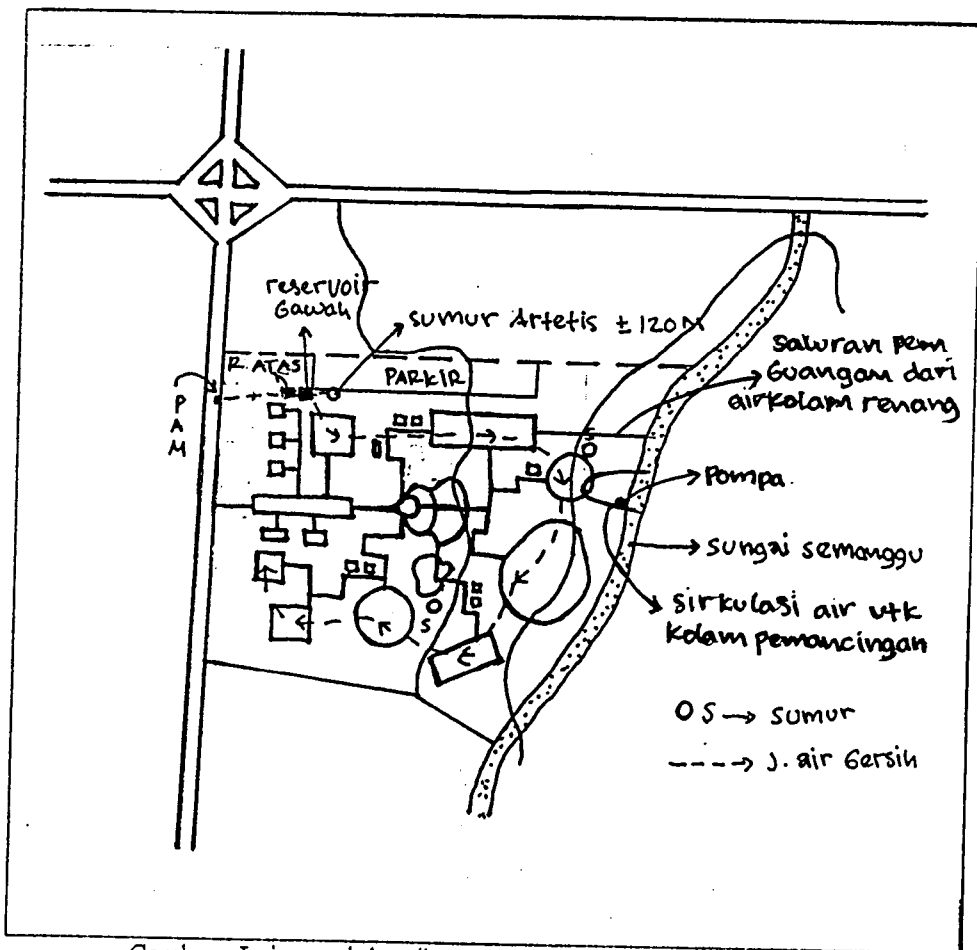 reservoir
Gawah
sumur Artetis ± 120 M
R. ATAS
PARKIR
PAM
saluran pem
Guangan dari
air kolam renang
Pompa
sungai semanggu
sirkulasi air utk
kolam pemancingan
S
O S → sumur
----→ J. air Gersih